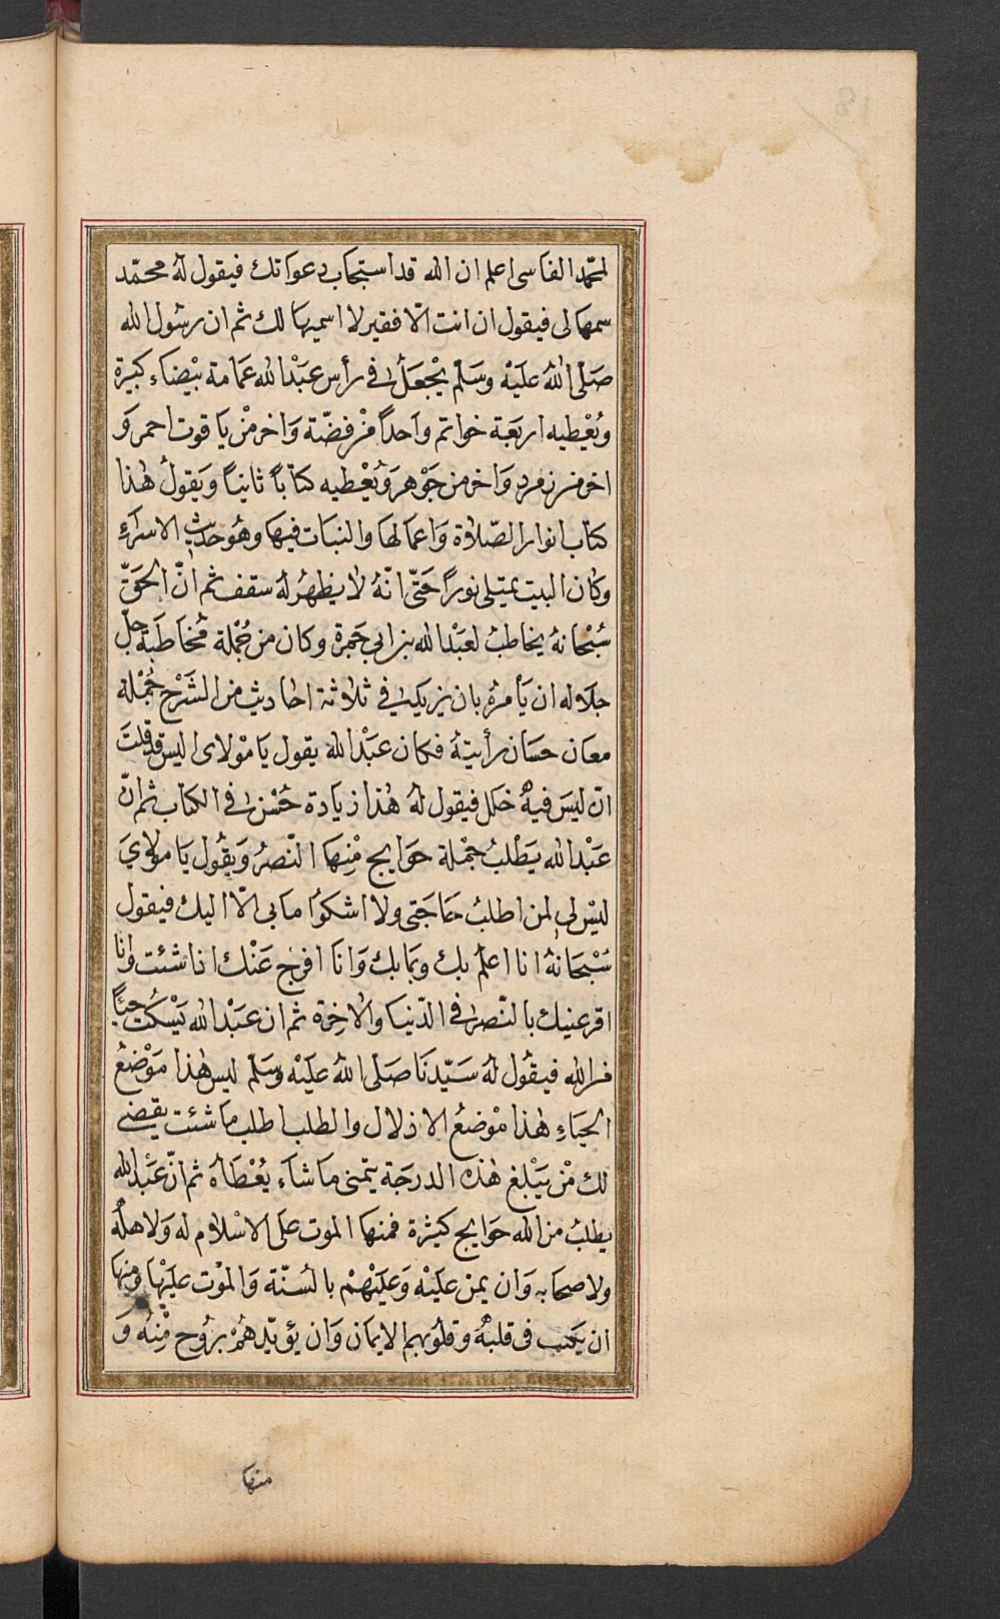 لمحمّد الفاسى اعلم ان الله قد استجاب دعواتك فيقول لهُ محمّد
سمها لى فيقول ان انت الّا فقير لا اسميها لك ثم ان رسُول الله
صَلّى اللهُ عليَهْ وسَلّم يجْعَلُ فى رأس عبَدْ الله عَمامة بيْضاء كبيَرة
ويُعْطيه اربَعَة خواتم واَحداً منْ فضّة وَاخر منْ ياَقوت احمر وَ
اخر من زمرد وَاخر من جَوْهر وَيُعْطيه كتاباً ثانياً ويَقولُ هٰذا
كتاب انوار الصّلاوٰة وَاعمالها والنيات فيها وهُو حديث الاسراءِ
وكان البيت يمتلى نوراً حَتّى انّهُ لا يظهرُ لهُ سقف ثم انّ الحَقّ
سُبْحانهُ يخاطبُ لعَبْد الله بن ابى جَمرة وكان من جُمْلة مُخاطَبَة جلّ
جلاله ان يَامرهُ بان يزيد فى ثلاثة احاديث من الشَرْح جُمْلة
معان حسَان رأيتهُ فكان عَبْد الله يقول يا موْلاى اليس قد قلتَ
انّ ليسَ فيهُ خَلل فيقول لهُ هٰذا زيادة حُسْن فى الكتاب ثم انّ
عَبْد الله يَطْلبُ جمْلة حَوايج مْنِها النّصرُ وَيقُول يَا مولاىَ
ليْس لى لمن اطلبُ حَاجَتى ولا اشكوُا ما بى الّا اليك فيقول
سُبْحَانهُ انا اعلم بك وبما بك وَانَا افرج عَنْك اذا شئت وانا
اقر عنيك بالنّصر فى الدّنيا والاٰخِرة ثم ان عَبْد الله يَسْكت حيَاً
من الله فيقُول لهُ سَيّدنَا صَلّى اللهُ عليَهْ وسَلّم ليس هٰذا مَوْضعُ
الحيَاءِ هٰذا موْضعُ الاذلال والطلب اطلب ما شئت يقضى
لك مَنْ يَبْلغ هٰذه الدرجَة يتمنى ما شاءَ يُعْطَاهُ ثم انّ عَبْد الله
يطلبُ من الله حَوايج كيثرة فمنها الموت على الاسْلام له وَلاهله
ولاصحابه وَان يمن عليَهْ وَعليَهْمْ بالسُنّة وَالموْت عليَها ومنها
ان يكتب فى قلبهُ وقلوُبهم الايمان وَان يؤيّدهُمْ برُوح مّنِهُ وَ
منها